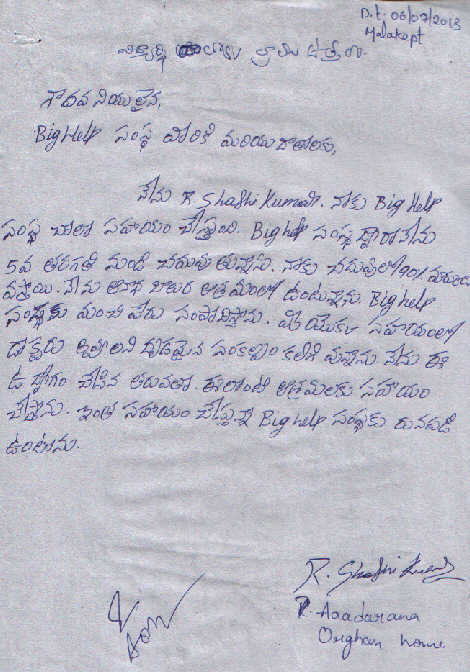 D.t: 06/07/2013
Malakpet
విద్యార్థి వ్రాయు ఉత్తరం.
గౌరవనీయులైన,
Big Help సంస్థ వారికి మరియు దాతలకు,
నేను R Shashi Kumar. నాకు Big Help
సంస్థ చాలా సహాయం చేస్తుంది. Big help సంస్థ ద్వారా నేను
5వ తరగతి నుండి చదువుతున్నాను. నాకు చదువులో 90%
వస్తాయి. నేను అనాథ బాలుర ఆశ్రమంలో ఉంటున్నాను. Big help
సంస్థకు మంచి పేరు సంపాదిస్తాను. మీ యొక్క సహాయంతో
డాక్టరు కావాలని దృఢమైన సంకల్పం కలిగి వున్నాను నేను ఈ
ఉద్యోగం చేసిన తరువాత ఇలాంటి ఆశ్రమాలకు సహాయం
చేస్తాను. ఇంత సహాయం చేస్తున్న Big help సంస్థకు రుణపడి
ఉంటాను.
R. Shashi Kumar
Aaadarana
Orghan home